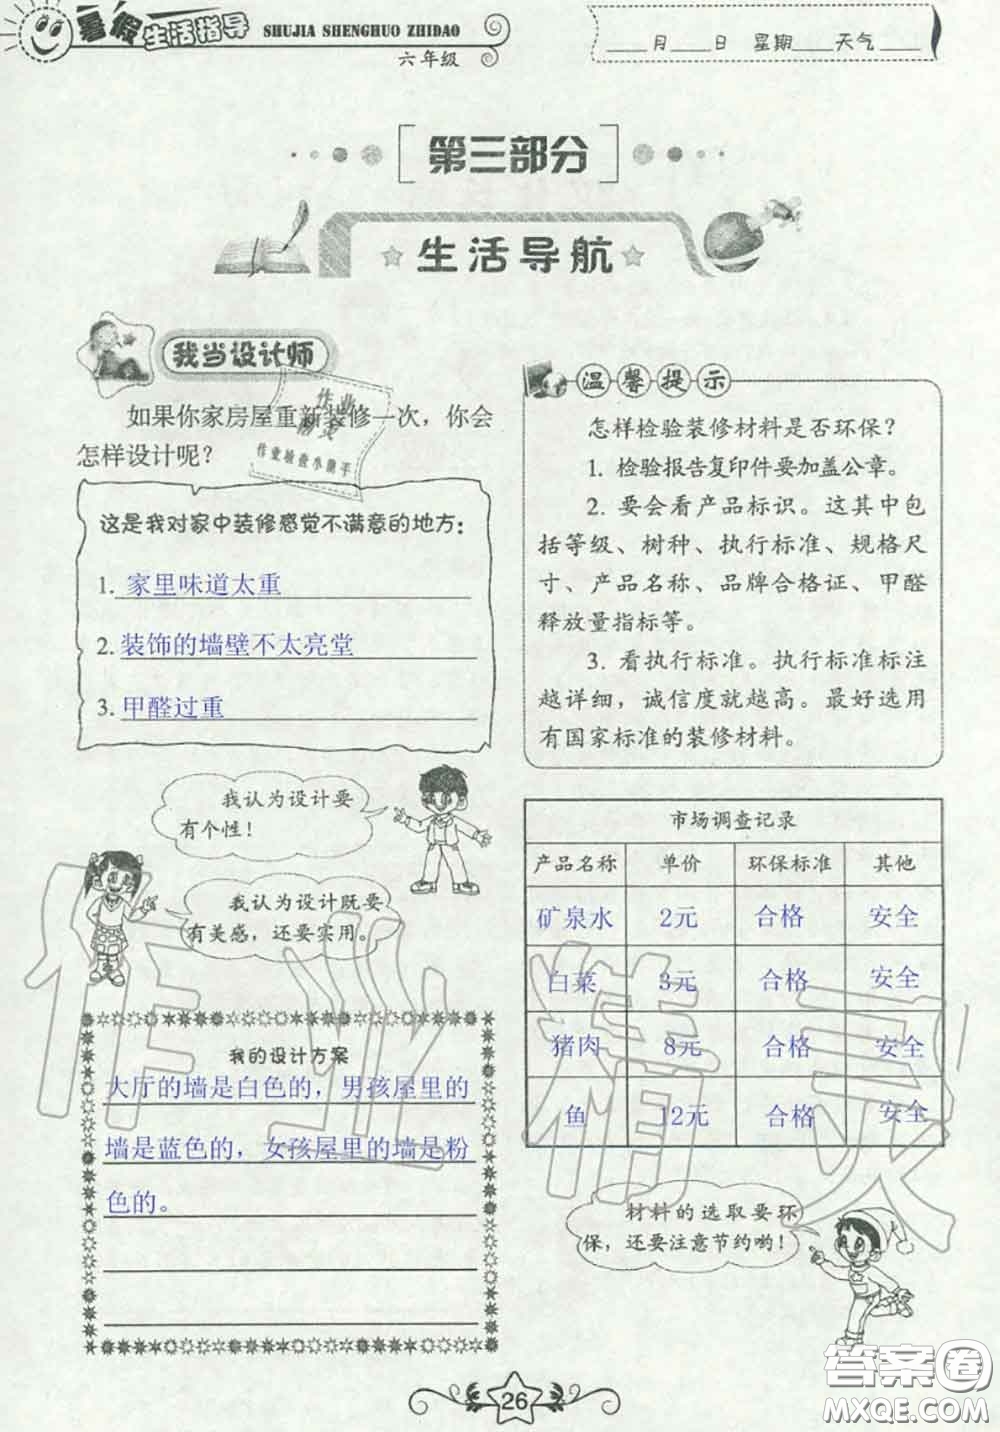 暑假生活指导 SHUJIA SHENGHUO ZHIDAO
六年级
____月____日 星期____天气____
第三部分
生活导航
我当设计师
如果你家房屋重新装修一次，你会
怎样设计呢？
这是我对家中装修感觉不满意的地方：
1. 家里味道太重
2. 装饰的墙壁不太亮堂
3. 甲醛过重
我认为设计要
有个性！
我认为设计既要
有美感，还要实用。
我的设计方案
大厅的墙是白色的，男孩屋里的
墙是蓝色的，女孩屋里的墙是粉
色的。
温馨提示
怎样检验装修材料是否环保？
1. 检验报告复印件要加盖公章。
2. 要会看产品标识。这其中包
括等级、树种、执行标准、规格尺
寸、产品名称、品牌合格证、甲醛
释放量指标等。
3. 看执行标准。执行标准标注
越详细，诚信度就越高。最好选用
有国家标准的装修材料。
市场调查记录
产品名称 单价 环保标准 其他
矿泉水 2元 合格 安全
白菜 3元 合格 安全
猪肉 8元 合格 安全
鱼 12元 合格 安全
材料的选取要环
保，还要注意节约哟！
26
作业精灵
答案圈
MXQE.COM